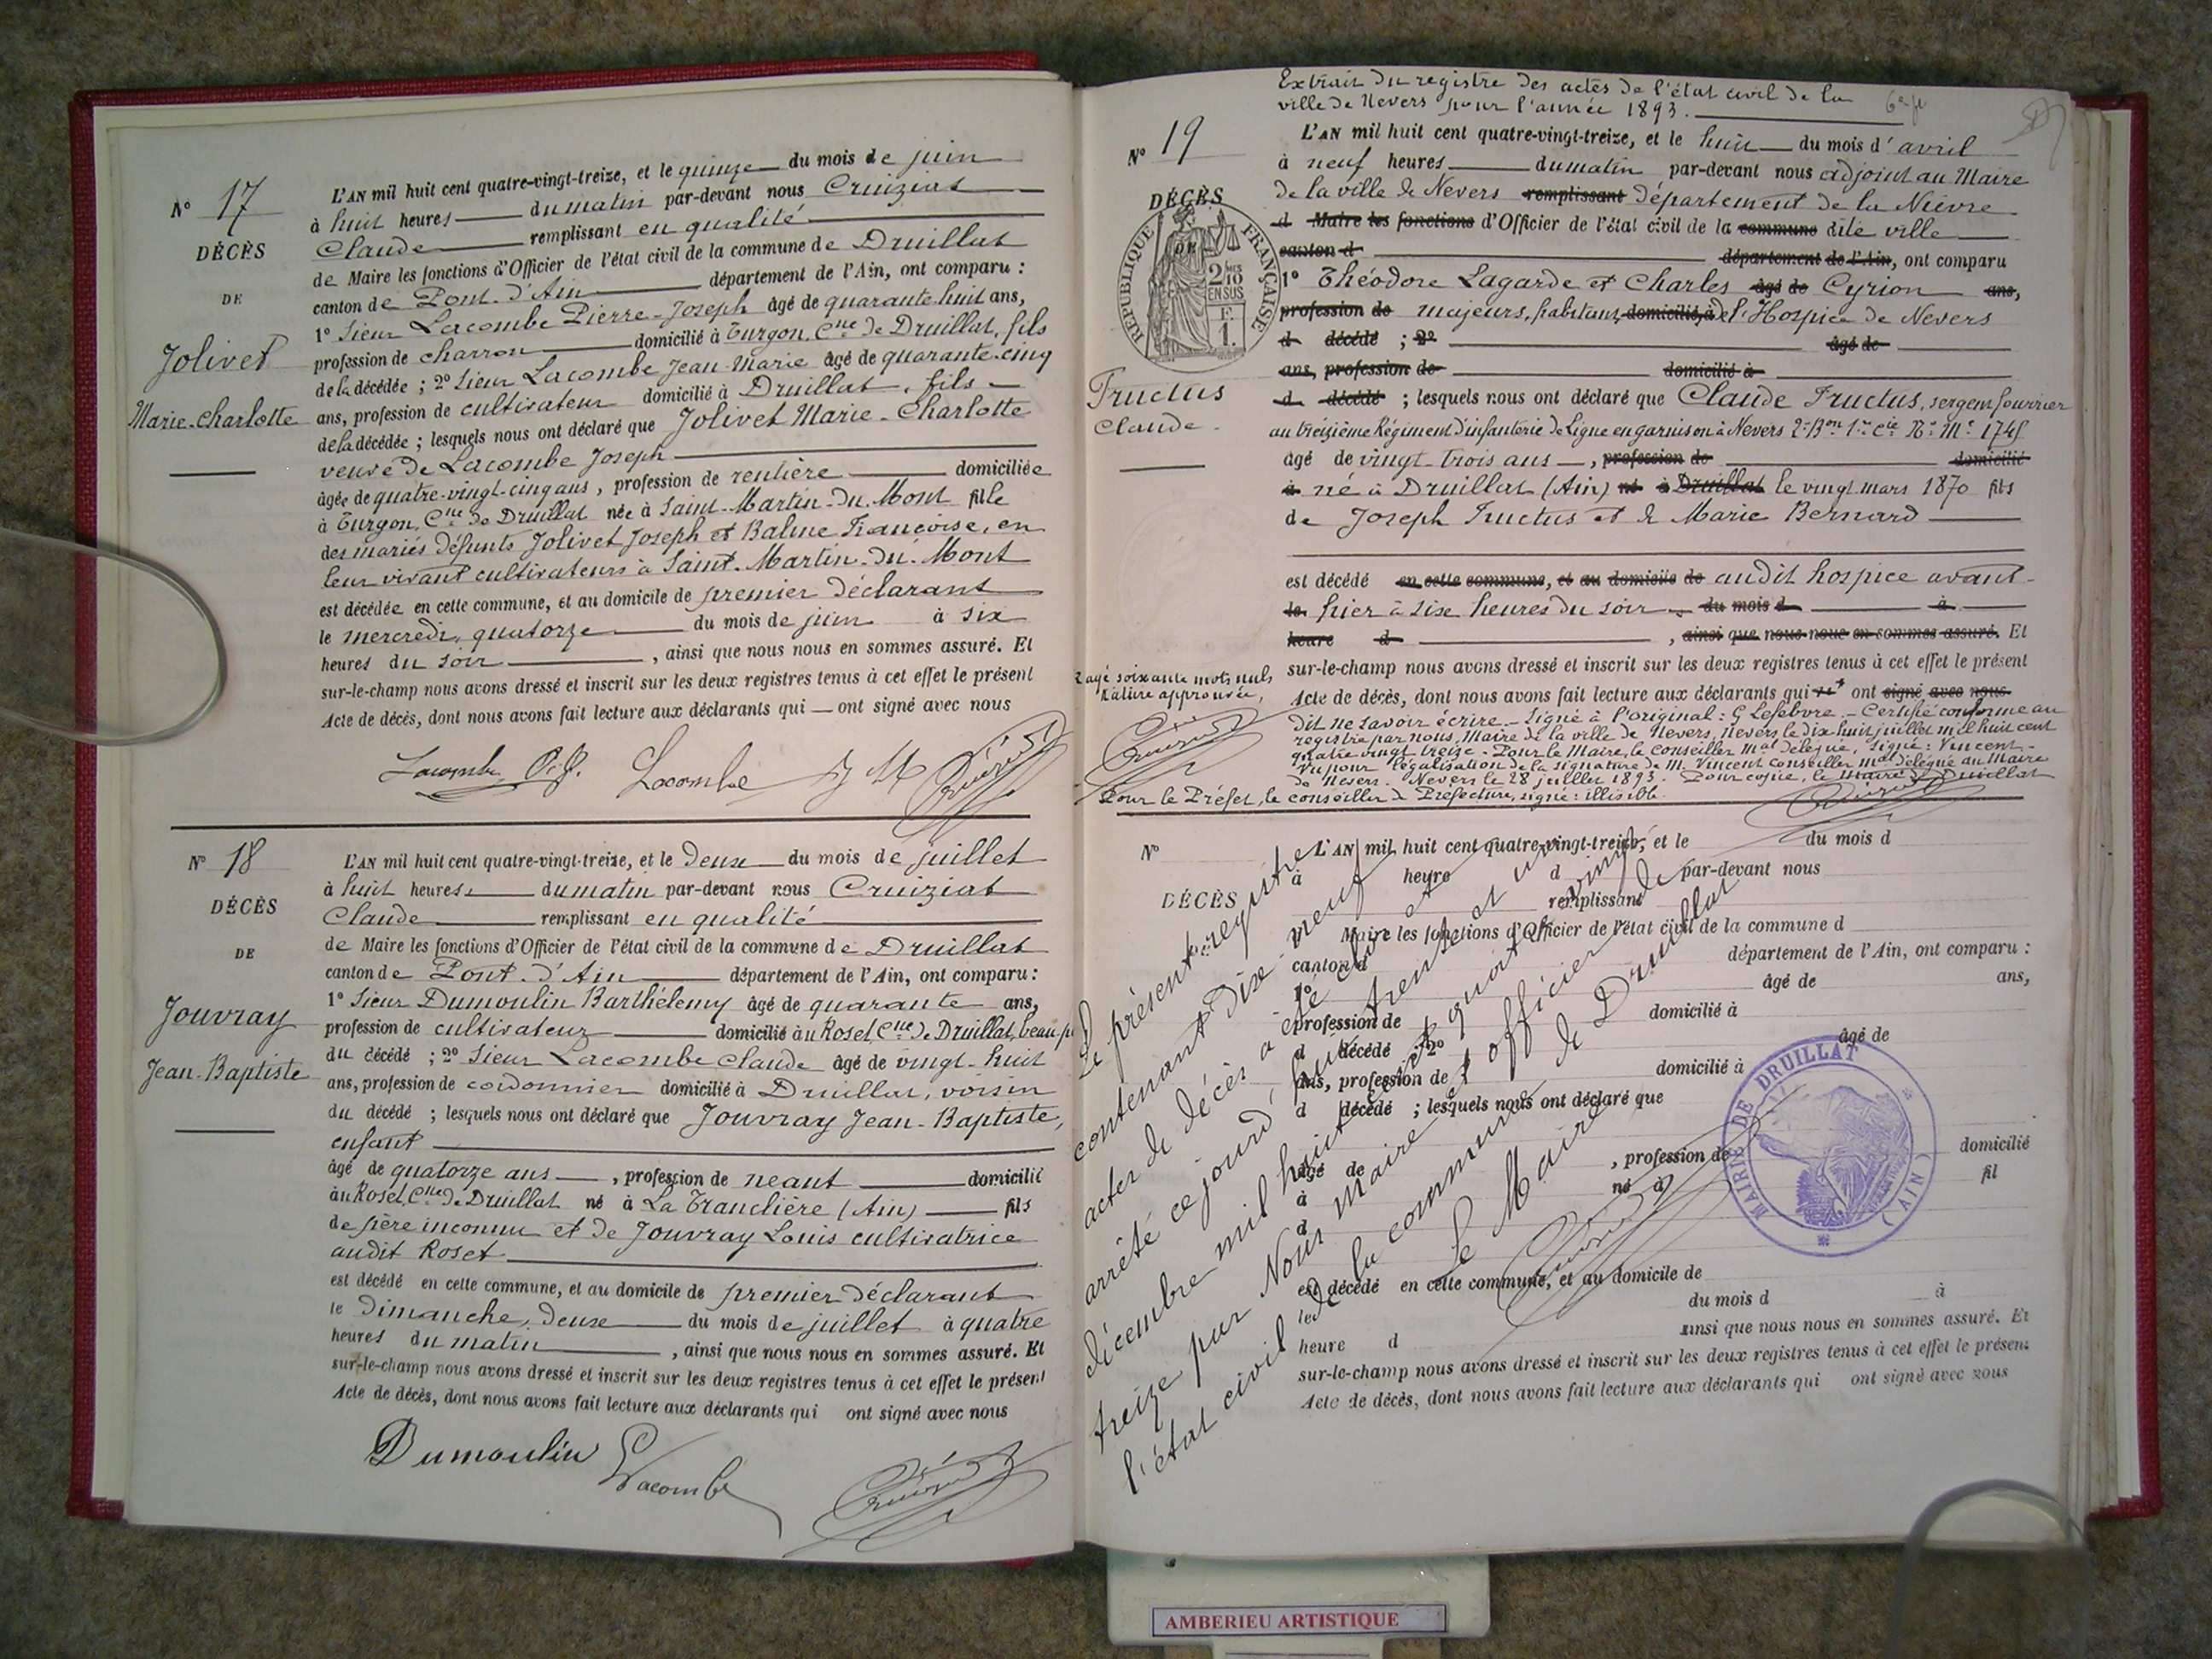 N° 17
DÉCÈS
DE
Jolivet
Marie-Charlotte
L'AN mil huit cent quatre-vingt-treize, et le quinze du mois de juin
à huit heures du matin par-devant nous Cruiziat
Claude remplissant en qualité
de Maire les fonctions d'Officier de l'état civil de la commune de Druillat
canton de Pont-d'Ain département de l'Ain, ont comparu :
1° Sieur Lacombe Pierre-Joseph âgé de quarante huit ans,
profession de charron domicilié à Turgon, Cne de Druillat, fils
de la décédée ; 2° Sieur Lacombe Jean-Marie âgé de quarante-cinq
ans, profession de cultivateur domicilié à Druillat, fils
de la décédée ; lesquels nous ont déclaré que Jolivet Marie-Charlotte
veuve de Lacombe Joseph
âgée de quatre-vingt-cinq ans, profession de rentière domiciliée
à Turgon, Cne de Druillat née à Saint-Martin-du-Mont fille
des mariés défunts Jolivet Joseph et Baline Françoise, en
leur vivant cultivateurs à Saint-Martin-du-Mont
est décédée en cette commune, et au domicile de premier déclarant
le mercredi, quatorze du mois de juin à six
heures du soir, ainsi que nous nous en sommes assuré. Et
sur-le-champ nous avons dressé et inscrit sur les deux registres tenus à cet effet le présent
Acte de décès, dont nous avons fait lecture aux déclarants qui — ont signé avec nous
Lacombe Lacombe J M
N° 18
DÉCÈS
DE
Jouvray
Jean-Baptiste
L'AN mil huit cent quatre-vingt-treize, et le deux du mois de juillet
à huit heures du matin par-devant nous Cruiziat
Claude remplissant en qualité
de Maire les fonctions d'Officier de l'état civil de la commune de Druillat
canton de Pont-d'Ain département de l'Ain, ont comparu :
1° Sieur Dumoulin Barthélemy âgé de quarante ans,
profession de cultivateur domicilié au Roset, Cne de Druillat, beau-p
du décédé ; 2° Sieur Lacombe Claude âgé de vingt-huit
ans, profession de cordonnier domicilié à Druillat, voisin
du décédé ; lesquels nous ont déclaré que Jouvray Jean-Baptiste,
enfant
âgé de quatorze ans, profession de neant domicilié
au Roset, Cne de Druillat né à La Tranclière (Ain) fils
de père inconnu et de Jouvray Louis cultivatrice
audit Roset
est décédé en cette commune, et au domicile de premier déclarant
le Dimanche, deux du mois de juillet à quatre
heures du matin, ainsi que nous nous en sommes assuré. Et
sur-le-champ nous avons dressé et inscrit sur les deux registres tenus à cet effet le présent
Acte de décès, dont nous avons fait lecture aux déclarants qui ont signé avec nous
Dumoulin Lacombe
Extrait du registre des actes de l'état civil de la
ville de Nevers pour l'année 1893.
N° 19
DÉCÈS
DE
RÉPUBLIQUE FRANÇAISE
2/10 EN SUS
F. 1.
Fructus
Claude
L'AN mil huit cent quatre-vingt-treize, et le huit du mois d'avril
à neuf heures du matin par-devant nous adjoint au Maire
de la ville de Nevers remplissant département de la Nièvre
d Maire les fonctions d'Officier de l'état civil de la commune dite ville
canton d département de l'Ain, ont comparu
1° Théodore Lagarde et Charles âgé de Cyrion ans,
profession de majeurs, habitant domicilié à l'Hospice de Nevers
d décédé ; 2° âgé de
ans, profession de domicilié à
d décédé ; lesquels nous ont déclaré que Claude Fructus, sergent fourrier
au treizième Régiment d'infanterie de Ligne en garnison à Nevers 2e Bon 1re Cie No Me 1745
âgé de vingt-trois ans, profession de domicilié
à né à Druillat (Ain) né à Druillat le vingt mars 1870 fils
de Joseph Fructus et de Marie Bernard
est décédé en cette commune, et au domicile de audit hospice avant-
le hier à six heures du soir du mois d à
heure d, ainsi que nous nous en sommes assuré. Et
sur-le-champ nous avons dressé et inscrit sur les deux registres tenus à cet effet le présent
Acte de décès, dont nous avons fait lecture aux déclarants qui ont signé avec nous
dit ne savoir écrire. Signé à l'original : G Lefebvre. Certifié conforme au
registre par nous, Maire de la ville de Nevers, Nevers, le dix huit juillet mil huit cent
quatre vingt treize. Pour le Maire, le conseiller mal délégué, signé : Vincent.
Vu pour légalisation de la signature de M. Vincent conseiller mal délégué au Maire
de Nevers. Nevers le 28 juillet 1893. Pour copie, le Maire de Druillat
Pour le Préfet, le conseiller de Préfecture, signé : illisible.
soixante mots nuls
approuvée,
N°
DÉCÈS
L'AN mil huit cent quatre-vingt-treize, et le du mois d
à heure d par-devant nous
remplissant
Maire les fonctions d'Officier de l'état civil de la commune d
canton d département de l'Ain, ont comparu :
1° âgé de ans,
profession de domicilié à
d décédé ; 2° âgé de
ans, profession de domicilié à
d décédé ; lesquels nous ont déclaré que
âgé de, profession de domicilié
à né à fil
d
est décédé en cette commune, et au domicile de
le du mois d à
heure d ainsi que nous nous en sommes assuré. Et
sur-le-champ nous avons dressé et inscrit sur les deux registres tenus à cet effet le présent
Acte de décès, dont nous avons fait lecture aux déclarants qui ont signé avec nous
Le présent registre
contenant dix-neuf
actes de décès a été clos et
arrêté ce jourd'hui trente et un
décembre mil huit cent quatre vingt
treize par Nous Maire et officier de
l'état civil de la commune de Druillat
Le Maire
MAIRIE DE DRUILLAT
(AIN)
AMBERIEU ARTISTIQUE